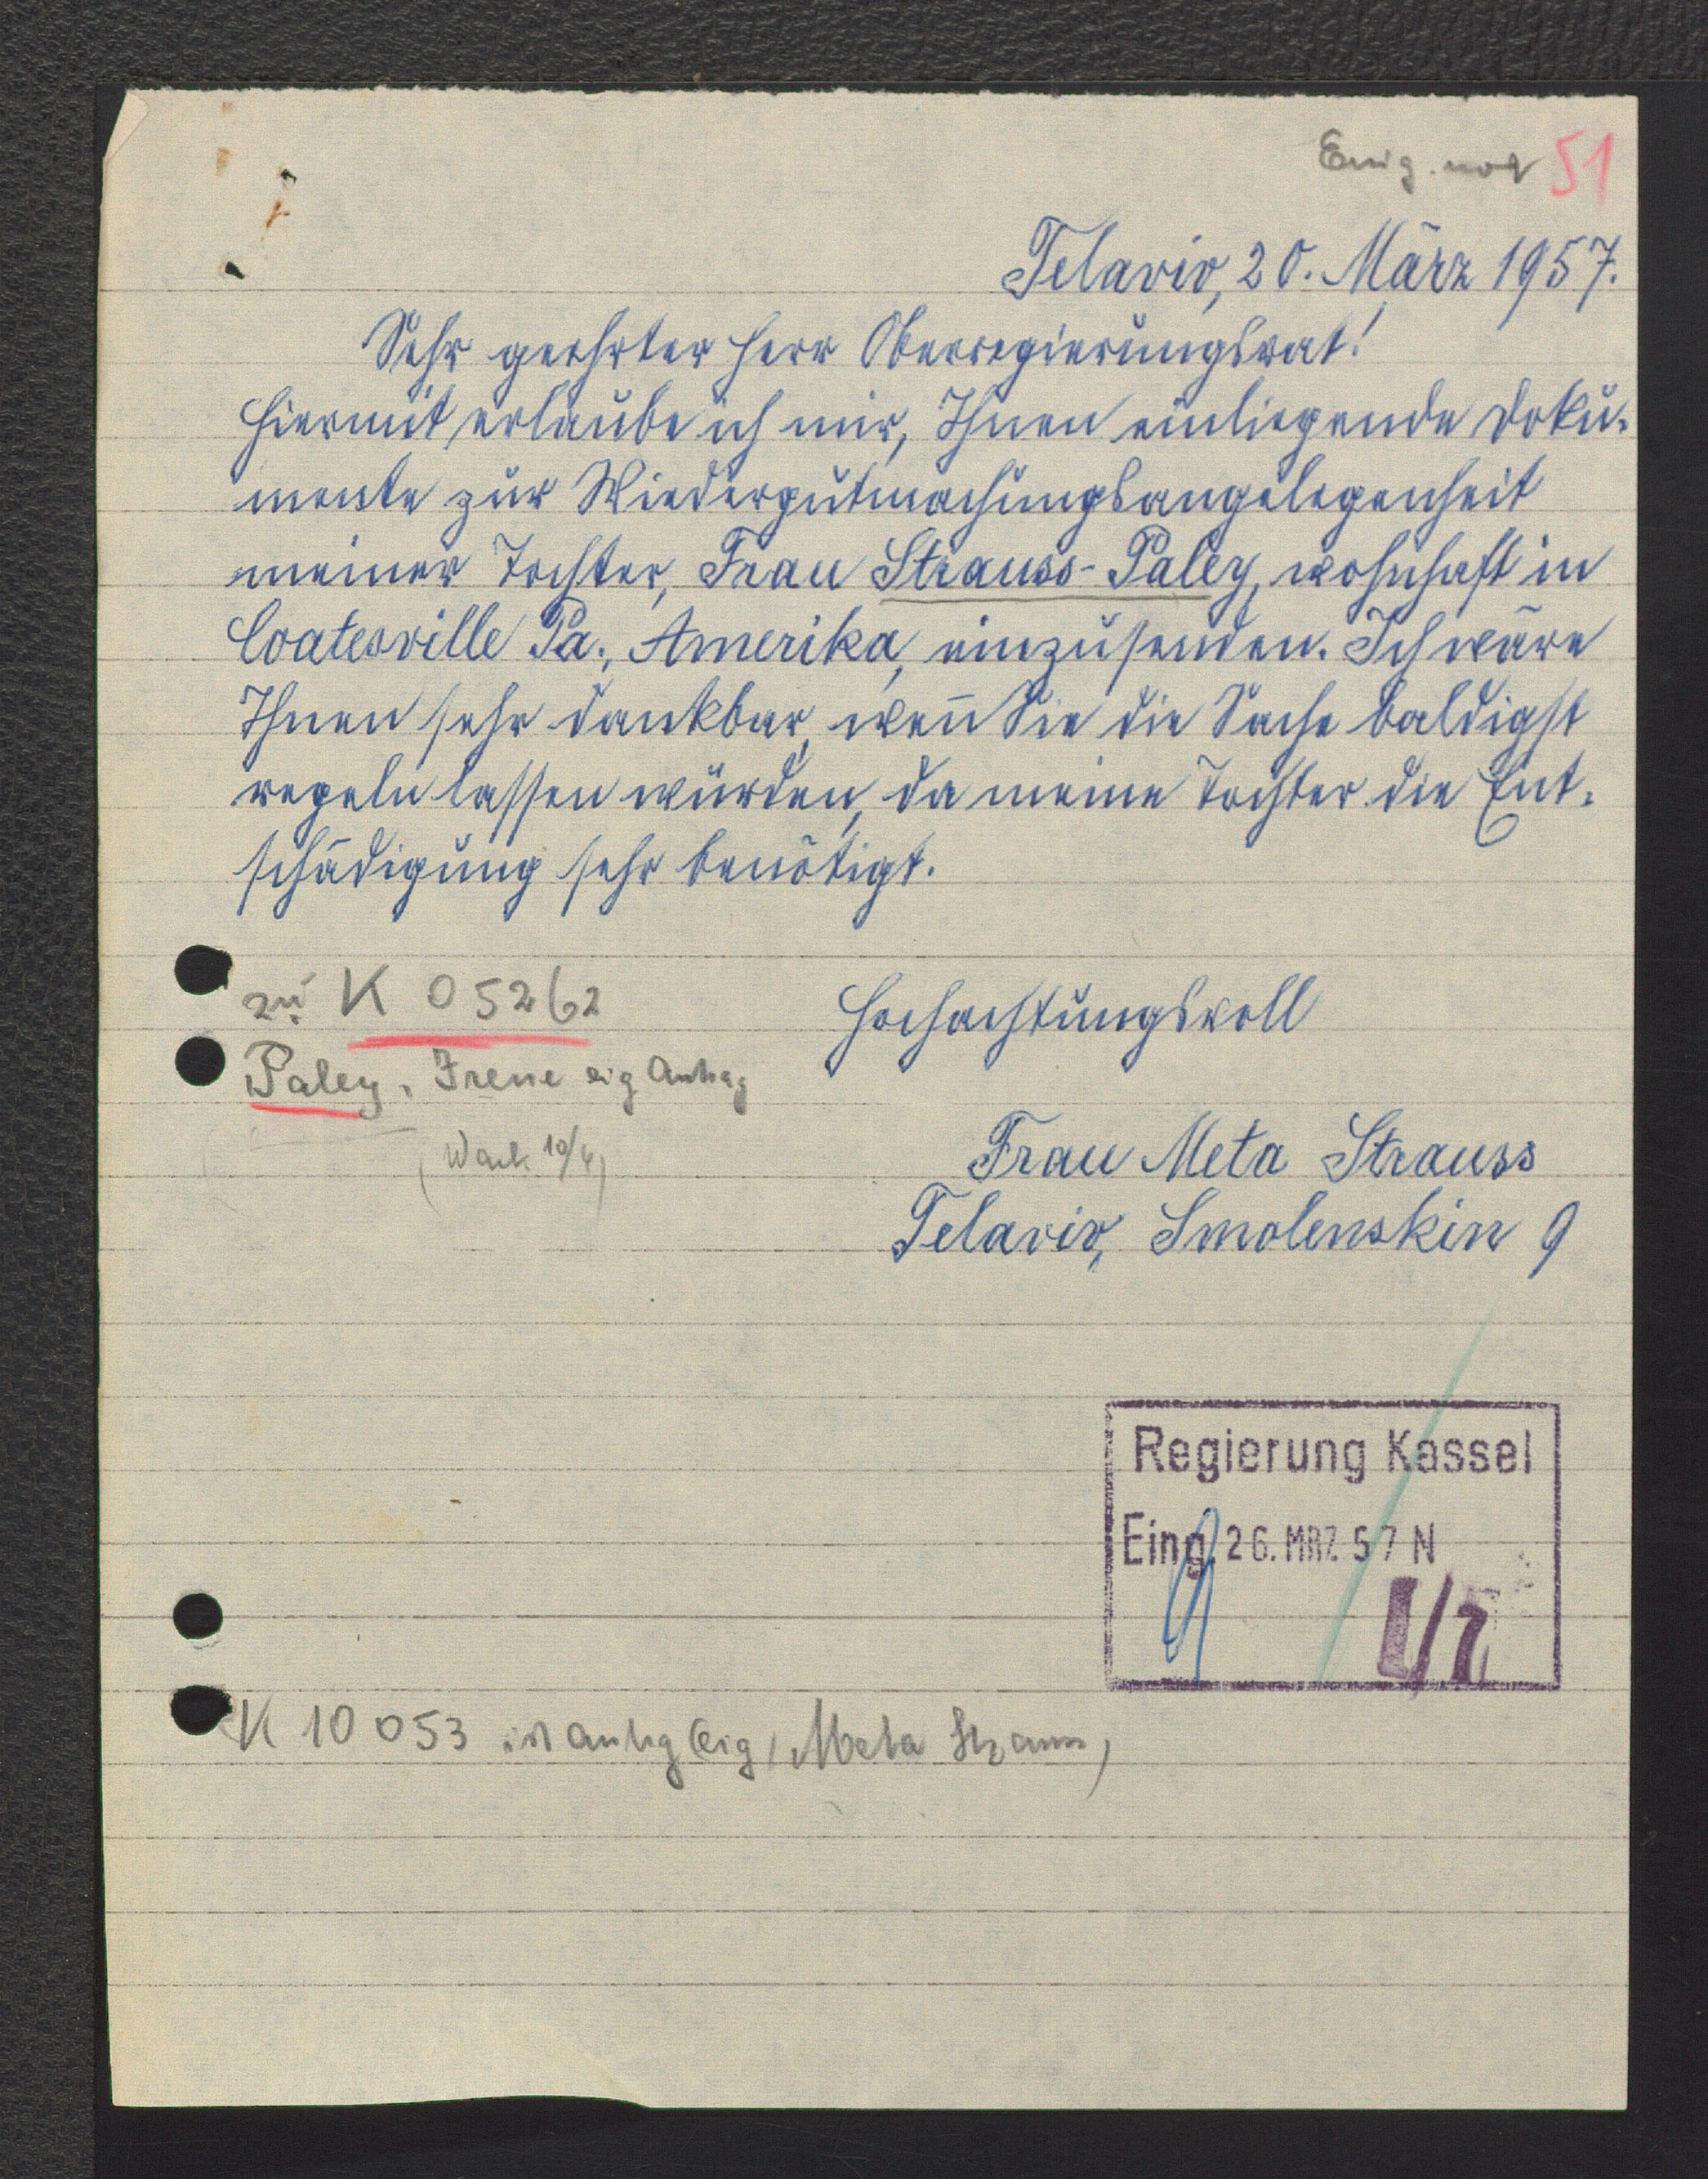 51
Telaviv, 20. März 1957.
Sehr geehrter Herr Oberregierungsrat!
Hiermit erlaube ich mir, Ihnen einliegende Doku-
mente zur Wiedergutmachungsangelegenheit
meiner Tochter, Frau Strauss-Paley, wohnhaft in
Coatesville Pa., Amerika, einzusenden. Ich wäre
Ihnen sehr dankbar, wen̄ Sie die Sache baldigst
regeln lassen würden, da meine Tochter die Ent-
schädigung sehr benötigt.
Hochachtungsvoll
zu K 05262
Paley, Irene eig Antrag
Frau Meta Strauss
Telaviv, Smolenskin 9
Regierung Kassel
Eing. 26. MRZ. 57 N
I/7
K 10053 ist Meta Strauss)